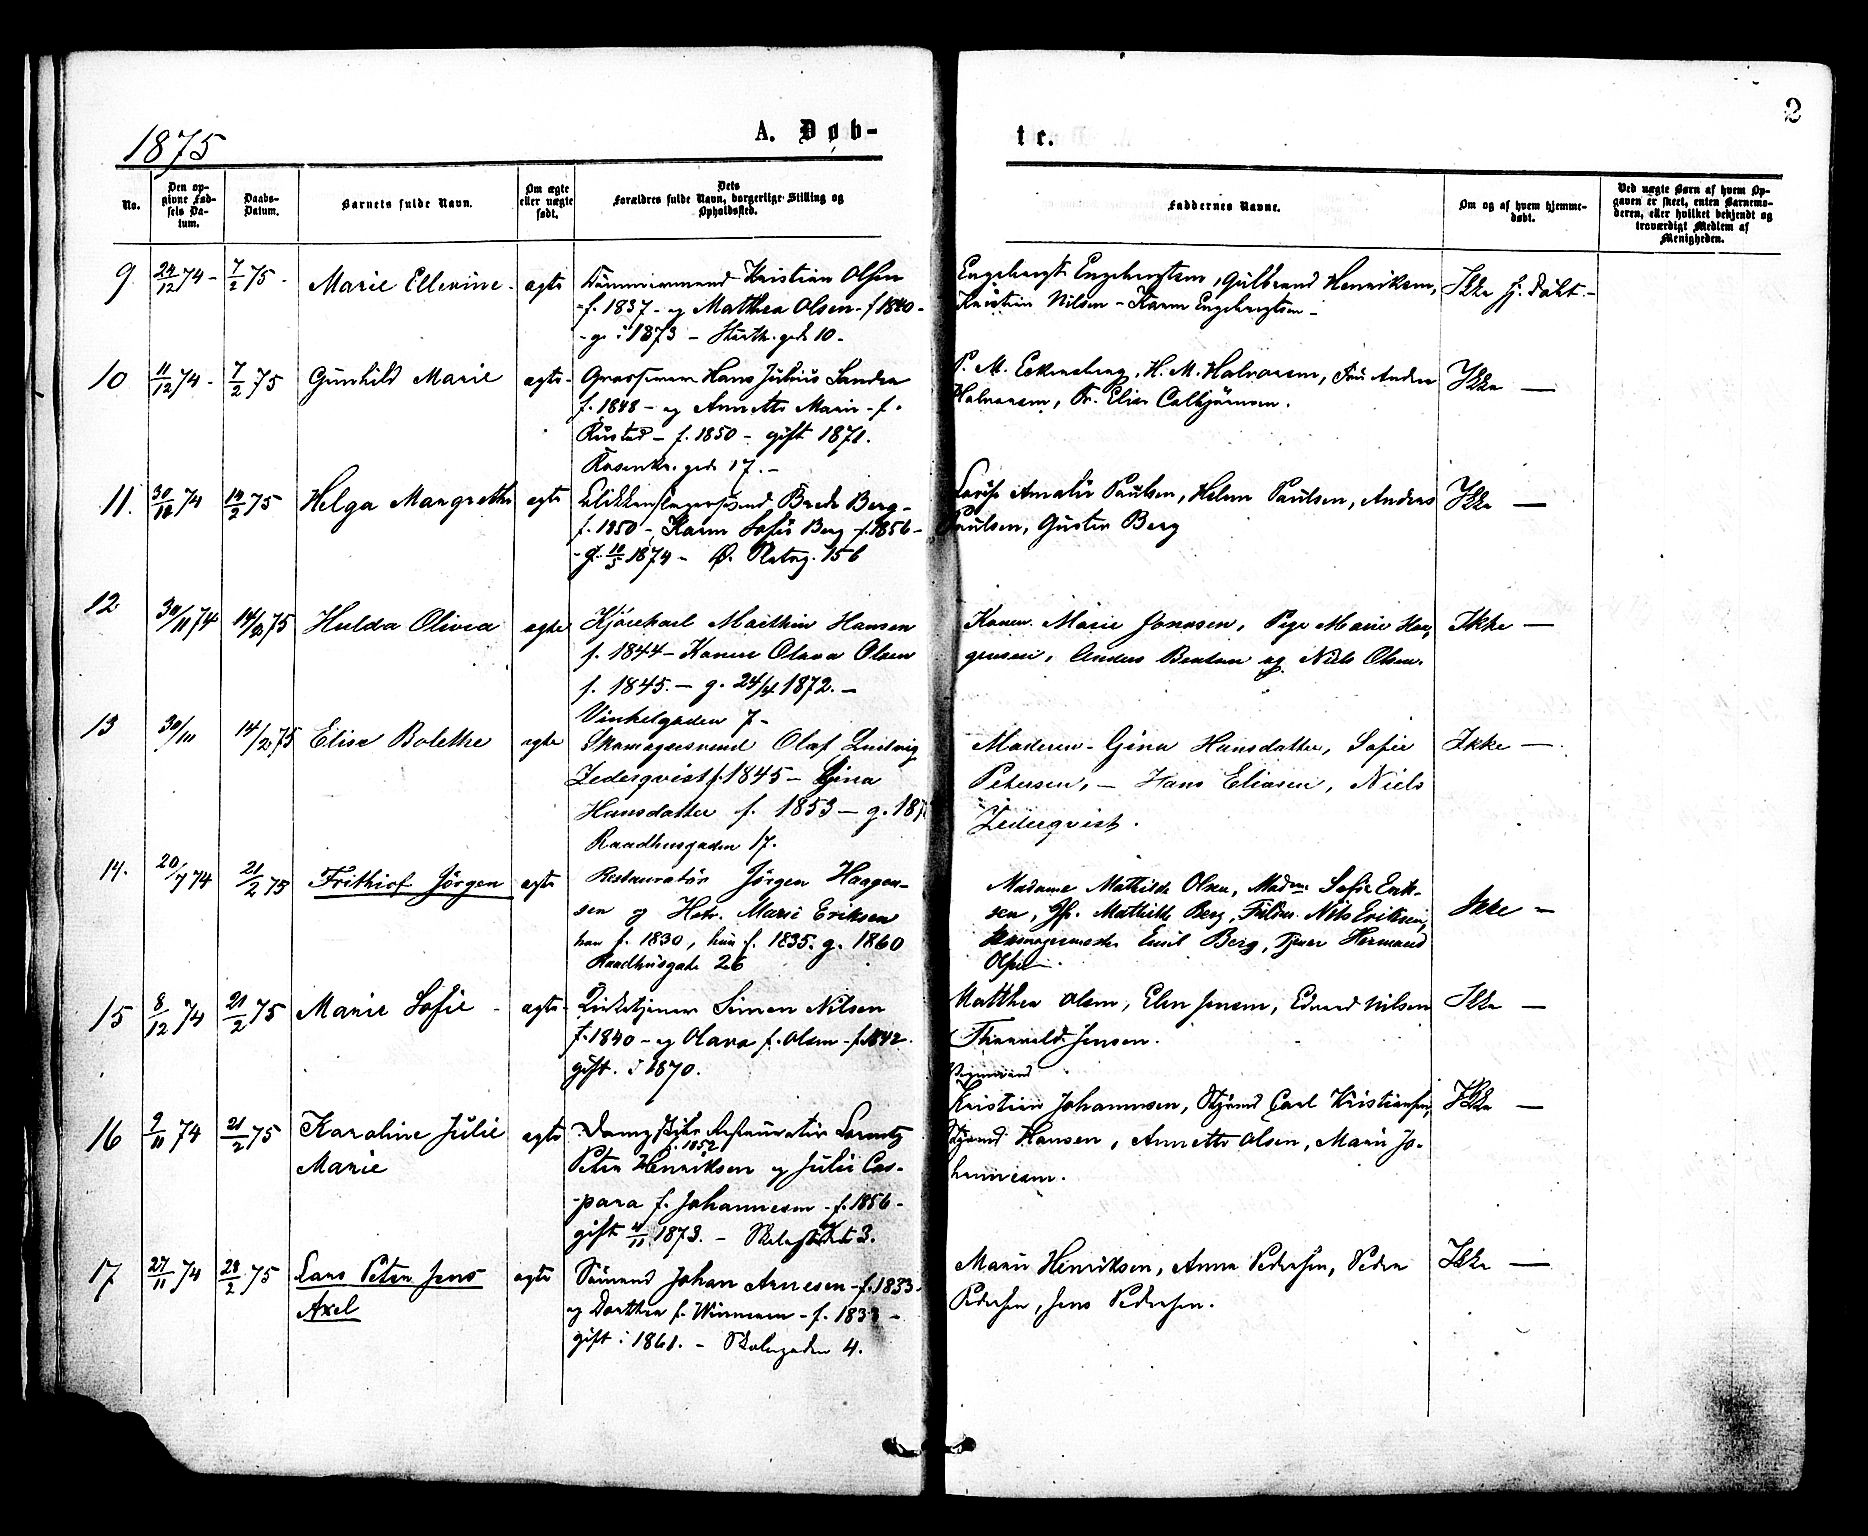 1875
A. Døb-
ter.
2
No.
Den op-
givne Fød-
sels Da-
tum.
Daabs-
Datum.
Barnets fulde Navn.
Om ægte
eller uægte
født.
Dets
Forældres fulde Navn, borgerlige Stilling og
Opholdssted.
Faddernes Navne.
Om og af hvem hjemme-
døbt.
Ved uægte Børn af hvem Op-
gaven er skeet, enten Barnemo-
deren, eller hvilket bekjendt og
troværdigt Medlem af
Menigheden.
9. 24/12 74 - 7/2 75 - Marie Ellevine - ægte Tømmermand Kristian Olsen
- f. 1837 - og Mathea Olsen - f 1840 -
- g. i 1873 - gade 10 -
Engebrigt Engebrigtsen, Gulbrand Henriksen,
Kristin Nilsen - Karen Engebrigtsen -
Ikke hj. døbt. -
10 11/12 74 - 7/2 75 Gunhild Marie ægte - Hans Julius Sandra
f. 1848 - og Annette Marie - f.
Rustad - f. 1850 - gift 1871.
Rosenkr. gade 17. -
P. M. Eckersberg, H. M. Halvorsen, Andrea
Halvorsen, Fr. Elise
Ikke —
11. 30/10 74 14/2 75 Helga Margrethe ægte Blikkenslagersvend Brede Berg -
f. 1850 -, Karen Sofie Berg - f. 1856 -
- g. 1874 - Ø. 156
Lovise Amalie Paulsen, Helene Paulsen, Anders
Paulsen, Gustav Berg
Ikke —
12 30/11 74 14/2 75 Hulda Olivia ægte Kjørekarl Marthin Hansen
f. 1844 - Konen Olava Olsen
f. 1845. — g. 24/4 1872. —
Vinkelgaden 7 -
Konen Marie Jonassen, Pige Marie
Anders Bentsen og Niels Olsen.
Ikke —
13 30/11 14/2 75 Elise Bolethe ægte Skomagersvend Olaf Ludvig
Zederqvist f. 1845 — Gina
Hansdatter f. 1853 — g. 187
Raadhusgaden 17.
Moderen - Gina Hansdatter, Sofie
Petersen, — Hans Eliasen, Niels
Zederqvist.
Ikke —
14. 20/7 74 21/2 75 Frithiof Jörgen ægte Restauratör Jörgen Haagen-
sen og Hstr. Marie Eriksen
han f. 1830, hun f. 1835. g. 1860
Raadhusgade 26
Madame Mathilde Olsen, Madme Sofie Erik-
sen, Jfr. Mathilde Berg, Nils Eriksen,
Skomagermester Emil Berg, Tjener Hermand
Olsen.
Ikke -
15 8/12 74 21/2 75 Marie Sofie - ægte - Kirketjener Simen Nilsen
f. 1840 - og Olava f. Olsen - f. 1842.
gift. i 1870.
Matthea Olsen, Elen Jensen, Edvard Nilsen
Thorvald Jensen.
Ikke —
16 9/11 74 21/2 75 Karoline Julie
Marie
ægte Dampskibs Restauratör Lorentz
f. 1852
Peter Henriksen og Julie Cas-
para f. Johannesen - f. 1856 -
gift 1873. -
Kristian Johannesen, Styrmd Carl Kristiansen,
Styrmd Hansen, Annette Olsen, Marie Jo-
hannesen.
Ikke —
17 27/11 74 28/2 75 Lars Peter Jens
Axel
ægte Sömand Johan Arnesen - f. 1833 -
og Dorthea f. - f. 1833 -
gift i 1861. - Skolegaden 4.
Marie Henriksen, Anne Pedersen, Peder
Pedersen, Jens Pedersen.
Ikke —